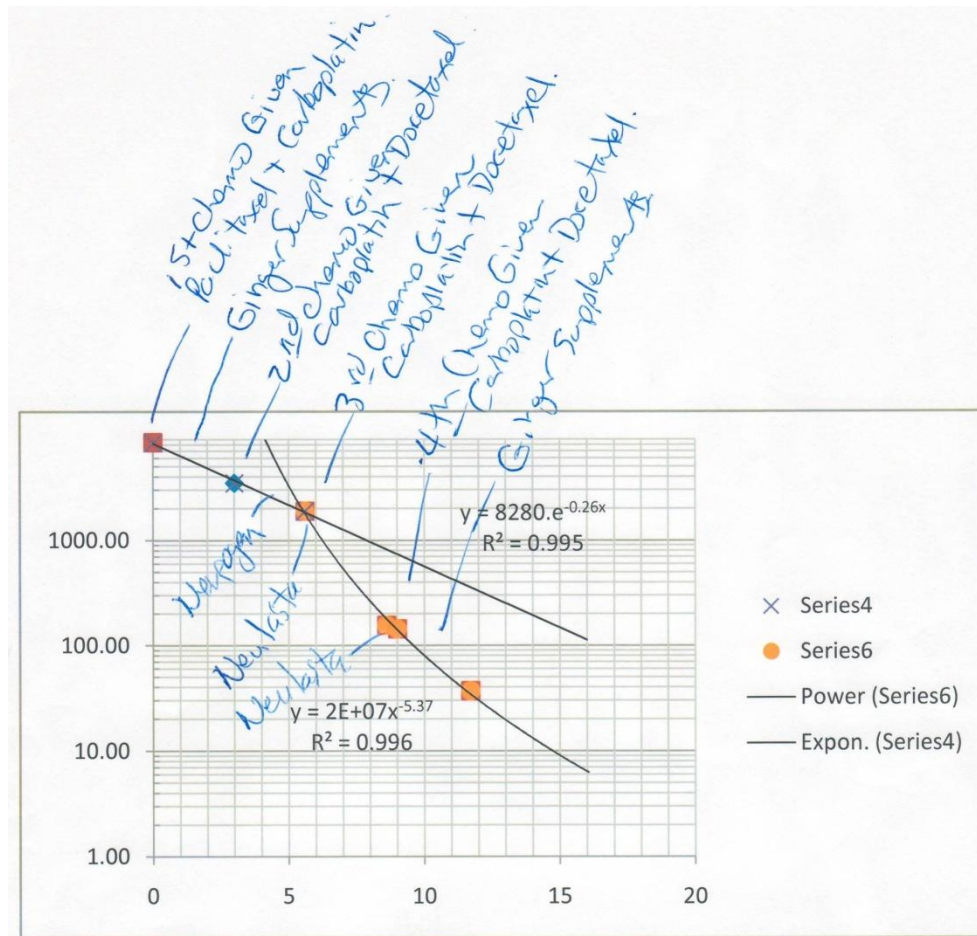 1st Chemo Given
Paclitaxel + Carboplatin
Ginger Supplements
2nd Chemo Given
Carboplatin + Docetaxel
3rd Chemo Given
Carboplatin + Docetaxel.
4th Chemo Given
Carboplatin + Docetaxel.
Ginger Supplements
y = 8280.e^-0.26x
R² = 0.995
1000.00
Neupogen
Neulasta
Neulasta
100.00
y = 2E+07x^-5.37
R² = 0.996
10.00
1.00
0 5 10 15 20
Series4
Series6
Power (Series6)
Expon. (Series4)